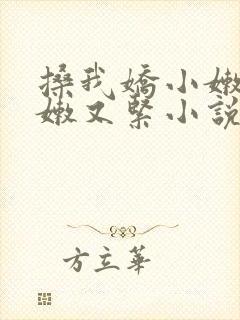 搡我嬌小嫩
嫩又緊小說
方立華